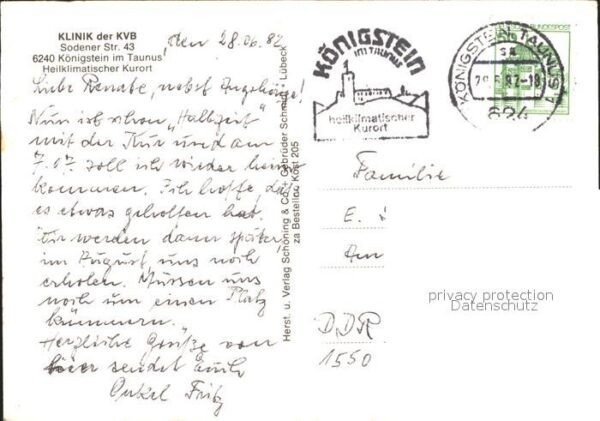 KLINIK der KVB
Sodener Str. 43
6240 Königstein im Taunus
Heilklimatischer Kurort
, den 28.06.82
Liebe Renate, nebst Angehörige!
Nun ist schon „Halbzeit"
mit der Kur und am
7.07. soll ich wieder heim
kommen. Ich hoffe, daß
es etwas geholfen hat.
Wir werden dann später,
im August uns noch
erholen. Müssen uns
noch um einen Platz
kümmern.
Herzliche Grüße von
hier sendet Euch
Onkel Fritz
Herst. u. Verlag Schöning & Co. + Gebrüder Schmidt · Lübeck
za Bestellnr. Köst 205
KÖNIGSTEIN
IM TAUNUS
heilklimatischer
Kurort
KÖNIGSTEIN, TAUNUS 1
sa
29.6.82-18
624
BUNDESPOST
Familie
E.
Am
DDR
1550
privacy protection
Datenschutz